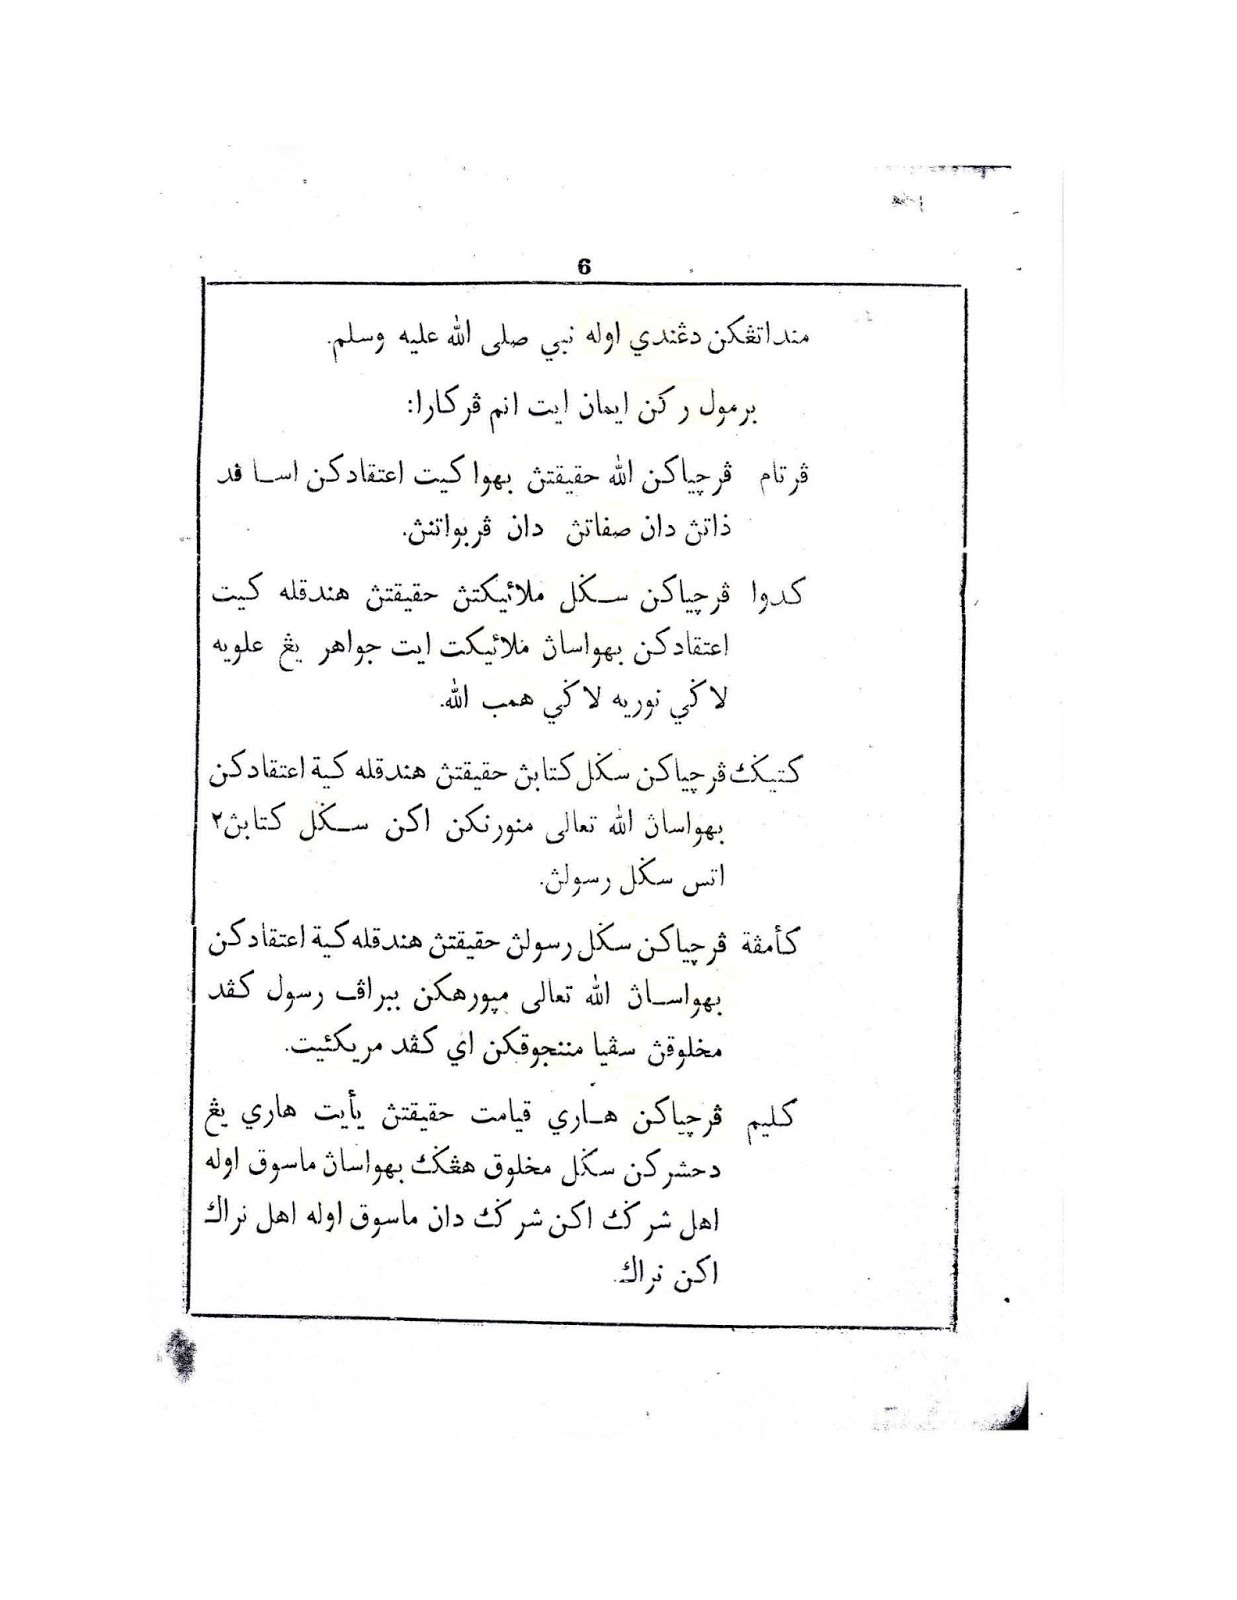 6
منداتڠكن دڠندي اوله نبي صلى الله عليه وسلم.
برمول ركن ايمان ايت انم ڤركارا:
ڤرتام ڤرچياكن الله حقيقتڽ بهوا كيت اعتقادكن اسا ڤد
ذاتڽ دان صفاتڽ دان ڤربواتنڽ.
كدوا ڤرچياكن سݢل ملائيكتڽ حقيقتڽ هندقله كيت
اعتقادكن بهواساڽ ملائيكت ايت جواهر يڠ علويه
لاݢي نوريه لاݢي همب الله.
كتيݢ ڤرچياكن سݢل كتابڽ حقيقتڽ هندقله كية اعتقادكن
بهواساڽ الله تعالى منورنكن اكن سݢل كتابڽ٢
اتس سݢل رسولڽ.
كأمڤة ڤرچياكن سݢل رسولڽ حقيقتڽ هندقله كية اعتقادكن
بهواساڽ الله تعالى مپورهكن ببراڤ رسول كڤد
مخلوقڽ سڤيا مننجوقكن اي كڤد مريكئيت.
كليم ڤرچياكن هاري قيامت حقيقتڽ يأيت هاري يڠ
دحشركن سݢل مخلوق هڠݢ بهواساڽ ماسوق اوله
اهل شرݢ اكن شرݢ دان ماسوق اوله اهل نراك
اكن نراك.